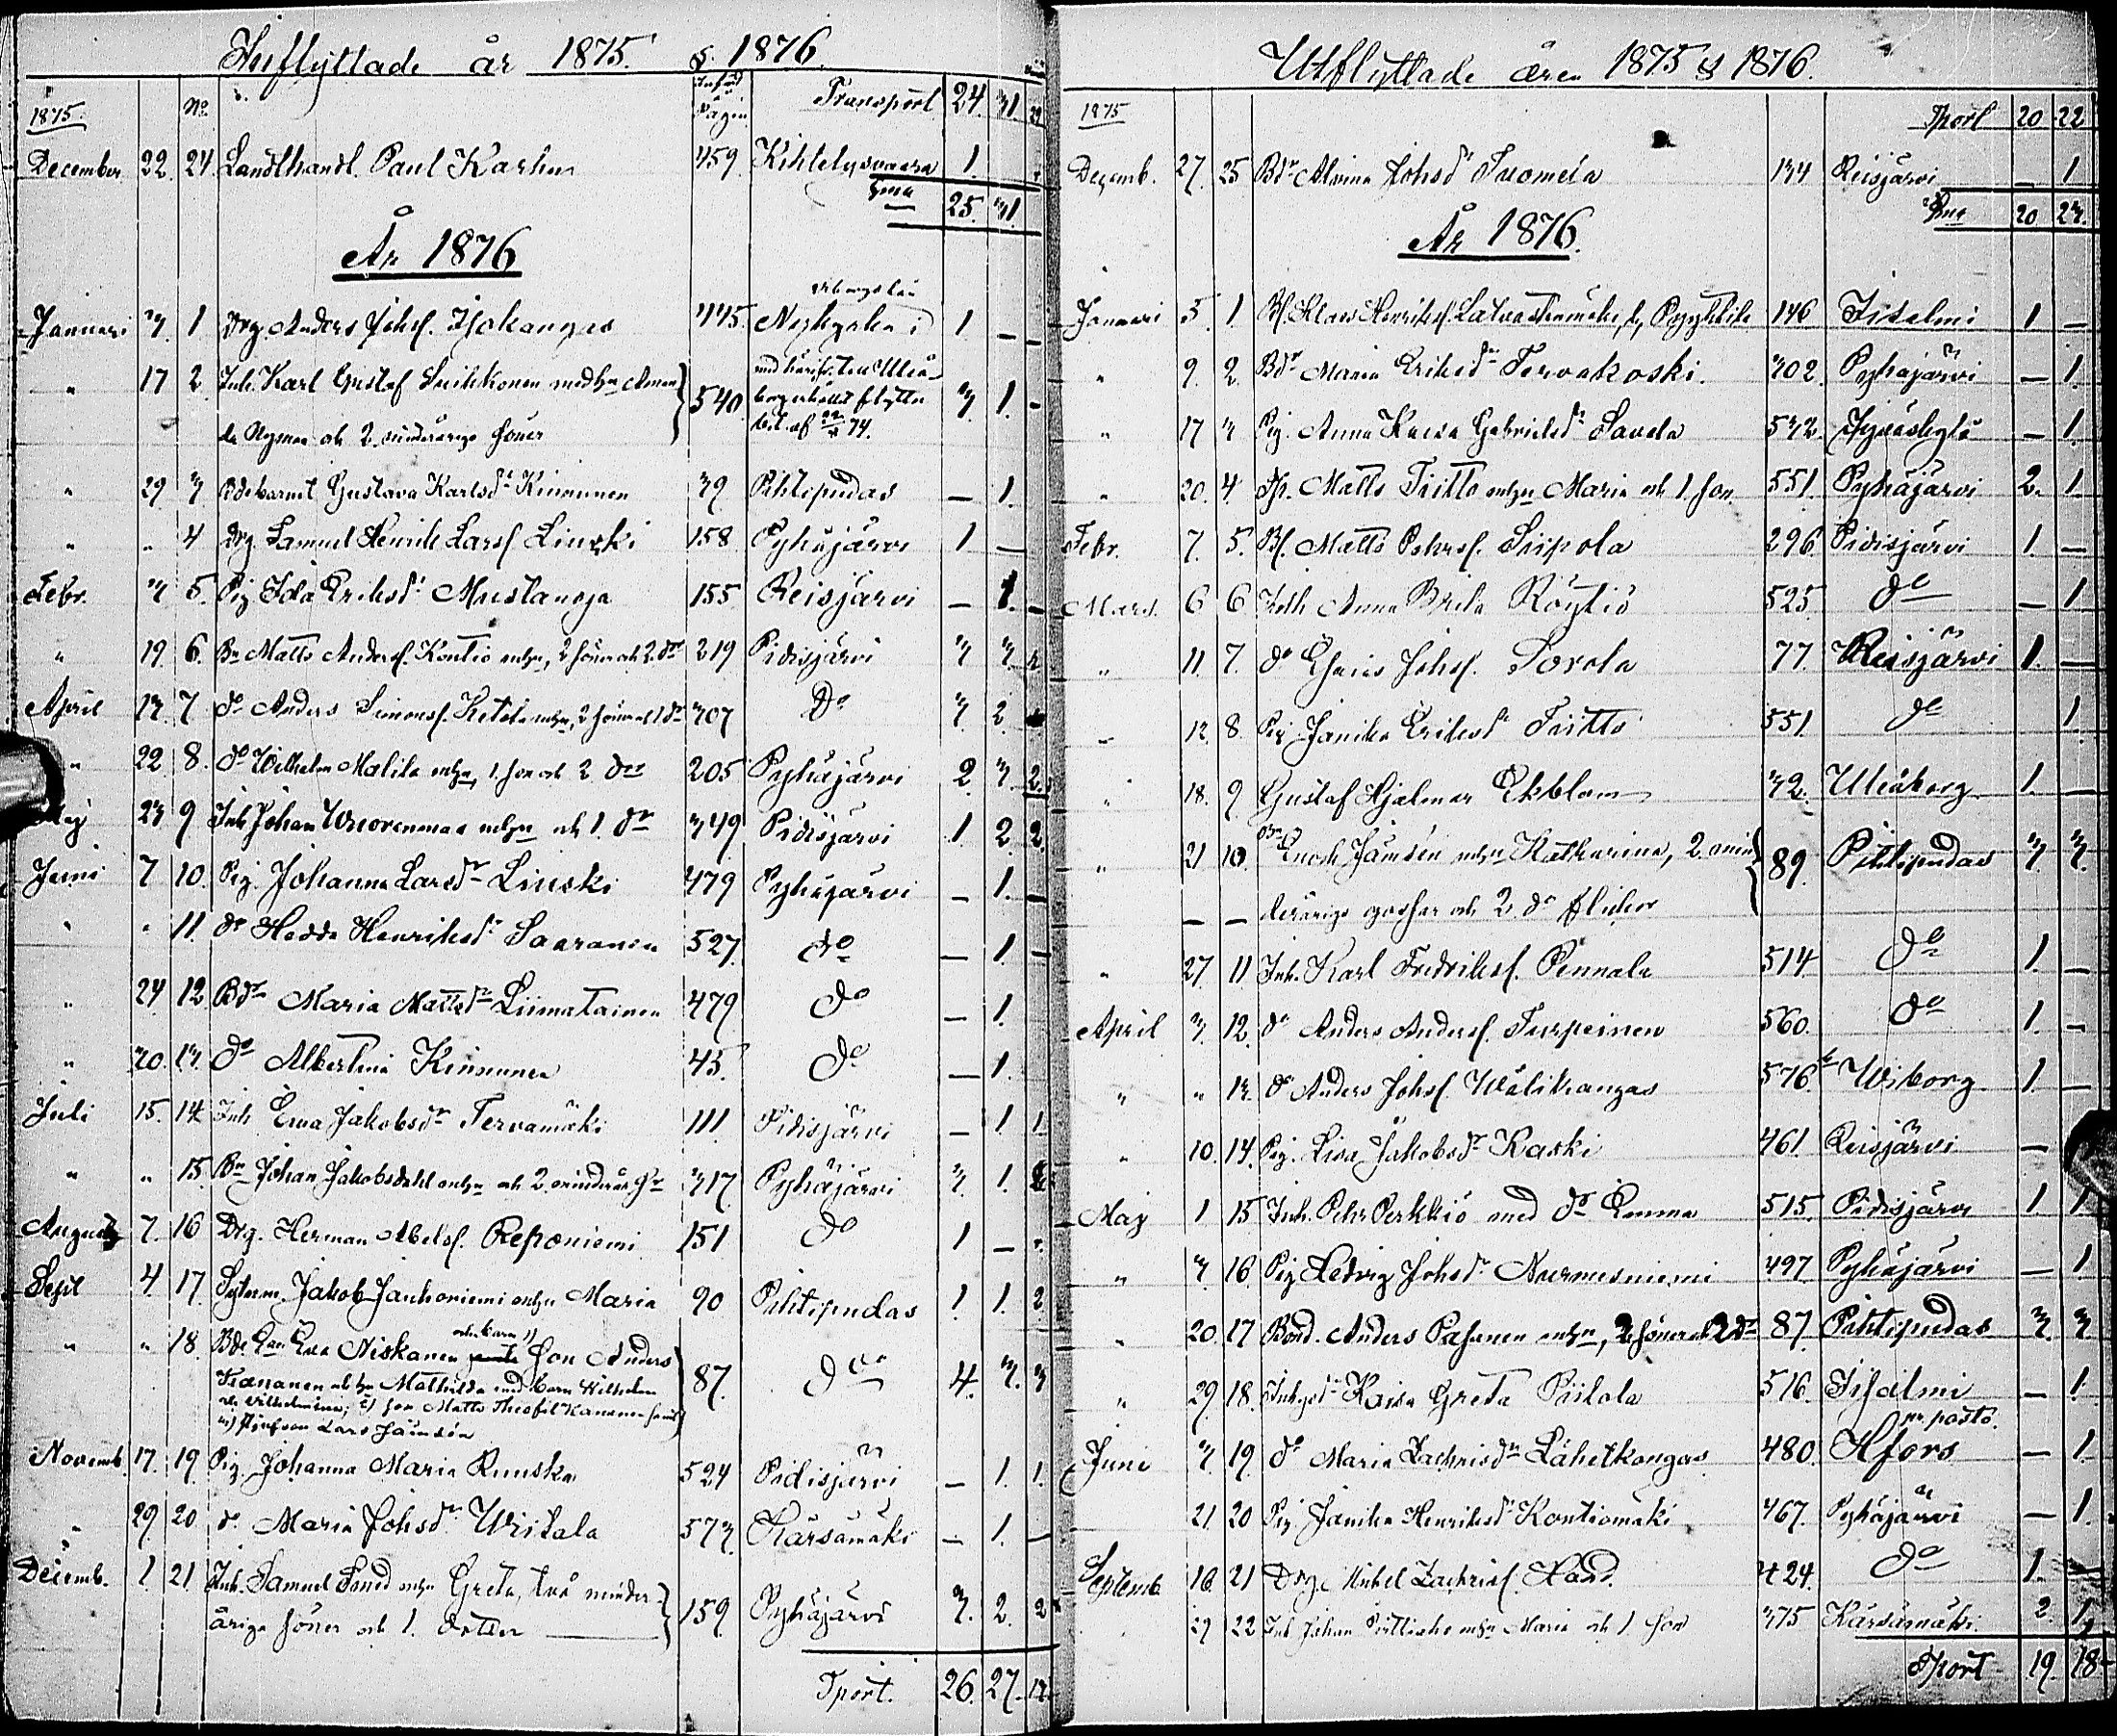 Inflyttade år 1875. & 1876.
1875. No. Pagin Transport 24. 31
December 22. 24. Landthandl. Paul Karhu 459. Kihtelysvaara 1.
Sma 25. 31.
År 1876
Januari 3. 1 Drg. Anders Johs. Isokangas 445. 1 —
" 17 2 Inh. Karl Gustaf med hu Aman
da Nyman och 2. minderårige söner 540. 3 1. -
" 29 3 Gustava Karlsdr Kinnunen 39 Pihtipudas — 1.
" " 4 Drg. Samuel Henrik Larss. Linski 158 Pyhäjärvi 1 —
Febr. 3 5. Pig. Ida Eriksdr Mustanoja 155 Reisjärvi — 1. —
" 19 6. Bn Matts Anderss. Kontio m hu, 2 söner och 2. dr 219 Pidisjärvi 3 3 2
April 13. 7 do Anders Simonss. Ketola m hu, 2 söner och 1 dr 307 Do 3 2
" 22 8. do Wilhelm Malila m hu, 1. son och 2 drr 205 Pyhäjärvi 2. 3. 2.
Maj 23 9 Inh. Johan Wuorenmaa m hu och 1. dr 349 Pidisjärvi 1 2 2.
Juni 7 10. Pig. Johanna Larsdr Linski 479 Pyhäjärvi — 1. —
" " 11. do Hedda Henriksdr Saaranen 527. do — 1. —
" 24 12 Bdr Maria Mattsdr Liimatainen 479 do — 1.
" 30. 13. do Albertina Kinnunen 45. do — 1.
Juli 15. 14 Inh. Eva Jakobsdr Tervamäki 111 Pidisjärvi — 1 1.
" " 15. Bn Johan Jakobsdahl m hu och 2. minderår. 317 Pyhäjärvi 3. 1.
Augusti 7. 16 Drg. Herman Abelss. Reponiemi 151 do 1 —
Sept 4 17. Jakob Jauhoniemi m hu Maria 90 Pihtipudas 1 1. 2
" " 18. Eva Niskanen son Anders
Kananen och hu Mathilda med barn Wilhelm
och Wilhelmina; 2) son Matts Theofil Kananen
Lars Jämsén 87. do 4. 3. 3
Novemb. 17. 19 Pig. Johanna Maria Runska 524 Pidisjärvi — 1. 1.
" 29 20 do Maria Johsdr Writala 573. Kärsämäki — 1. —
Decemb. 1 21 Inh. Samuel m hu Greta, två minder-
årige söner och 1. dotter 159 Pyhäjärvi 3. 2. 2
Tport. 26. 27. 13.
Utflyttade åren 1875 & 1876.
1875 Tport 20 22
Decemb. 27. 25 Bdr Alvina Johsdr Tuomela 134 Reisjärvi — 1
Sma 20 23.
År 1876.
Januari 5. 1. Bs. Klaes Henrikss. Latvastenmäki 146 Idensalmi 1 —
" 9. 2. Bdr Maria Eriksdr Tervakoski. 302. Pyhäjärvi — 1.
" 17 3 Pig. Anna Kaisa Gabrielsdr Savela 532 Jyväskylä — 1.
" 20. 4. Matts Tiitto m hu Maria och 1. son 551. Pyhäjärvi 2. 1.
Febr. 7. 5. Bs. Matts Pehrss. Siipola 296. Pidisjärvi 1. —
Mars. 6 6 Inh. Anna Brita Röytiö 525. do — 1
" 11 7. do Johs. Sorola 77. Reisjärvi 1. —
" 12. 8. Pig. Janika Eriksdr Tiitto 551. do 1.
" 18. 9 Gustaf Hjalmar Ekblom 32. Uleåborg 1. —
" 21 10. Bn Enoch Jämsén m hu Katharina, 2. min
— — derårige gossar och 2. do flickor 89. Pihtipudas 3. 3.
" 27. 11 Inh. Karl Fredrikss. Pennala 514. do 1. —
April 3. 12. do Anders Anderss. Turpeinen 560. do 1. —
" " 13. do Anders Johs. Wälikangas 576. Wiborg 1. —
" 10. 14. Pig. Lisa Jakobsdr Raski 461. Reisjärvi —
Maj 1 15 Inh. Pehr Perkkiö med dr Emma 515. Pidisjärvi 1 1
" 3. 16 Pig. Hedvig Johsdr Nurmesniemi 497 Pyhäjärvi — 1
" 20. 17 Bond. Anders Pasanen m hu, 2 söner och 2 dr 87. Pihtipudas 3. 3
" 29 18. Kaisa Greta Piilola 516. Idensalmi — 1.
Juni 3. 19. do Maria Zachrisdr Lähetkangas 480. Hfors — 1.
21. 20 Pig. Janika Henriksdr Kontiomäki 467. Pyhäjärvi — 1.
Septemb 16 21 Drg. Mikel Zachriss. 424. do 1. —
29 22 Inh. Johan m hu Maria och 1 son 375 Kärsämäki. 2. 1.
Tport 19. 18